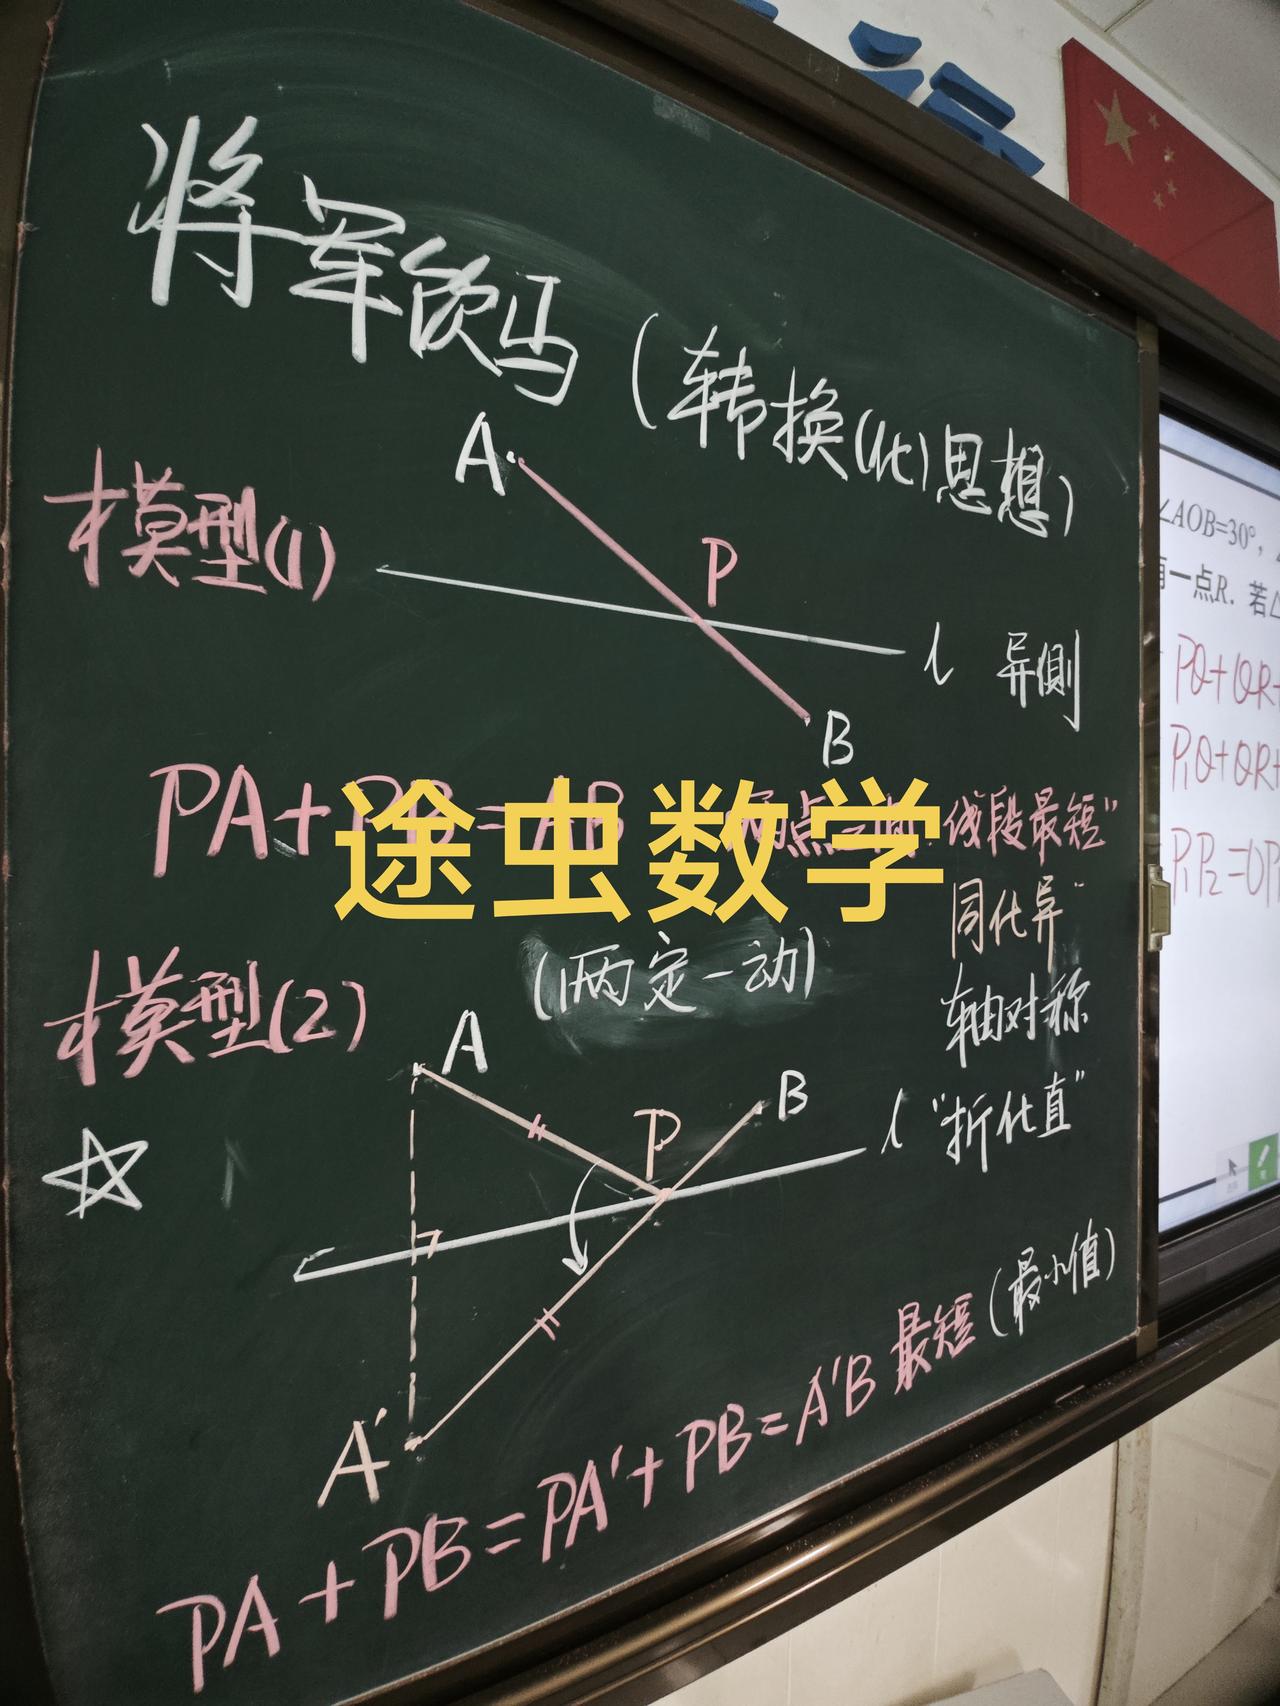 将军饮马（转换(化)思想）
模型(1)
A
P
l 异侧
B
PA+PB=AB 两点之间.线段最短"
途虫数学
同化异"
模型(2)
(两定一动)
轴对称
A
P
B
l "折化直"
A'
PA+PB=PA'+PB=A'B 最短(最小值)
∠AOB=30°，
一点R. 若△
PQ+QR+
P₁Q+QR+
P₁P₂=OP